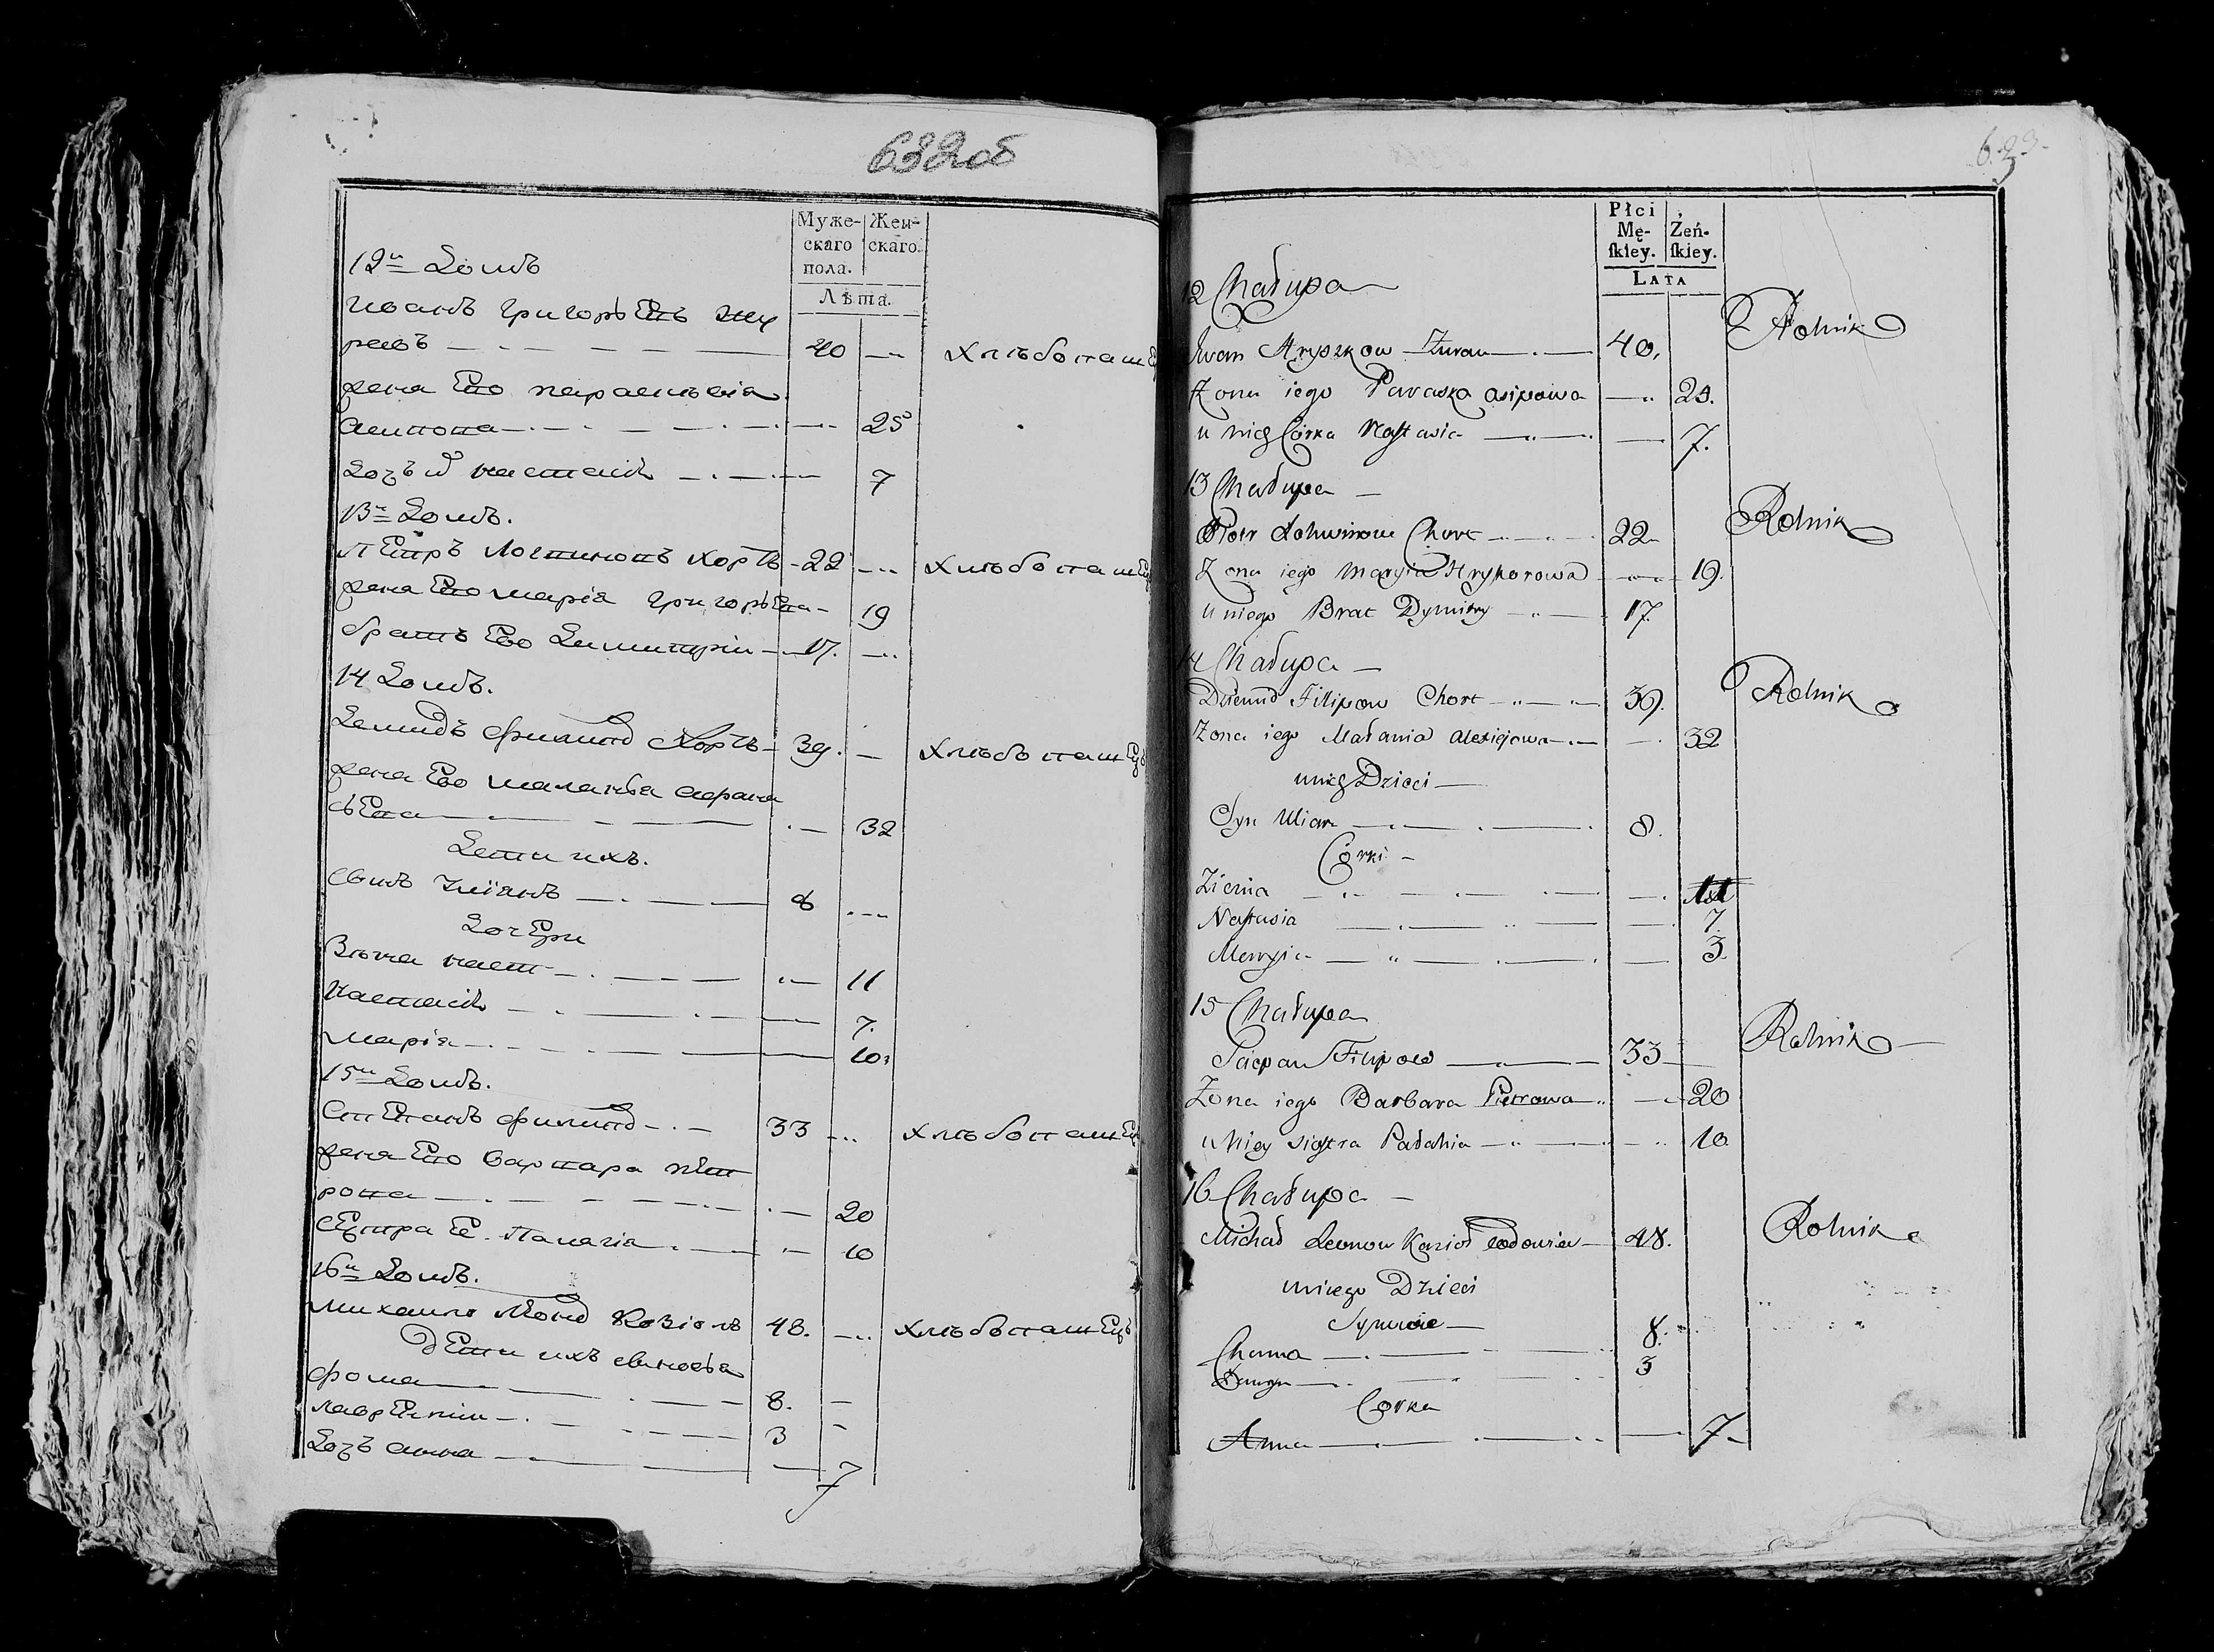 632об
Муже-
скаго
пола.
Жен-
скаго.
Лѣта.
12й Домъ
Иванъ Григорьевъ Жу
равъ 40 Хлѣбопашец
жена Его Парасковія
Асипова 25
Дочъ Настасія 7
13й Домъ.
Петръ Логвиновъ Хортъ 22 Хлѣбопашец
жена Его Марія Григорьева 19
братъ Его Димитрій 17.
14 Домъ.
Демидъ Филипо Хортъ 39. Хлѣбопашецъ
жена Его Маланья
32
Дети ихъ.
Сынъ Улїянъ 8
Дочери
Наст 11
Настасія 7.
Марія 10.
15й Домъ.
Степанъ Филипо 33 Хлѣбопашец
жена Его Варвара Пет
рова 20
Сестра Ее Палагія 10
16й Домъ.
Михаило Леоно Козіолъ 48. Хлѣбопашецъ
Дети ихъ сыновья
Фома 8.
Лаврентій 3
Дочъ Анна 7
Płci
Mę-
skiey.
Żeń-
skiey.
Lata
12 Chałupa
Iwan Hryszkow Żuraw 40. Rolnik
Żona iego Paraska Asipowa 25.
u nich Córka Nastasia 7.
13 Chałupa
Piotr Łohwinow Chort 22 Rolnik
Żona iego Maryia Hryhorowa 19.
u niego Brat Dymitry 17.
14 Chałupa
Dziemid Filipow Chort 39. Rolnik
Żona iego Małania Alexiejowa 32
u nich Dzieci
Syn Ulian 8.
Córki
Zienia 11
Nastasia 7.
Maryia 3.
15 Chałupa
Sciepan Filipow 33 Rolnik
Żona iego Barbara Pietrowa 20
u niey Siostra Pałahia 10
16 Chałupa
Michał Leonow Kozioł wdowiec 48. Rolnik
u niego Dzieci
Synowie
Choma 8.
3
Córka
Anna 7